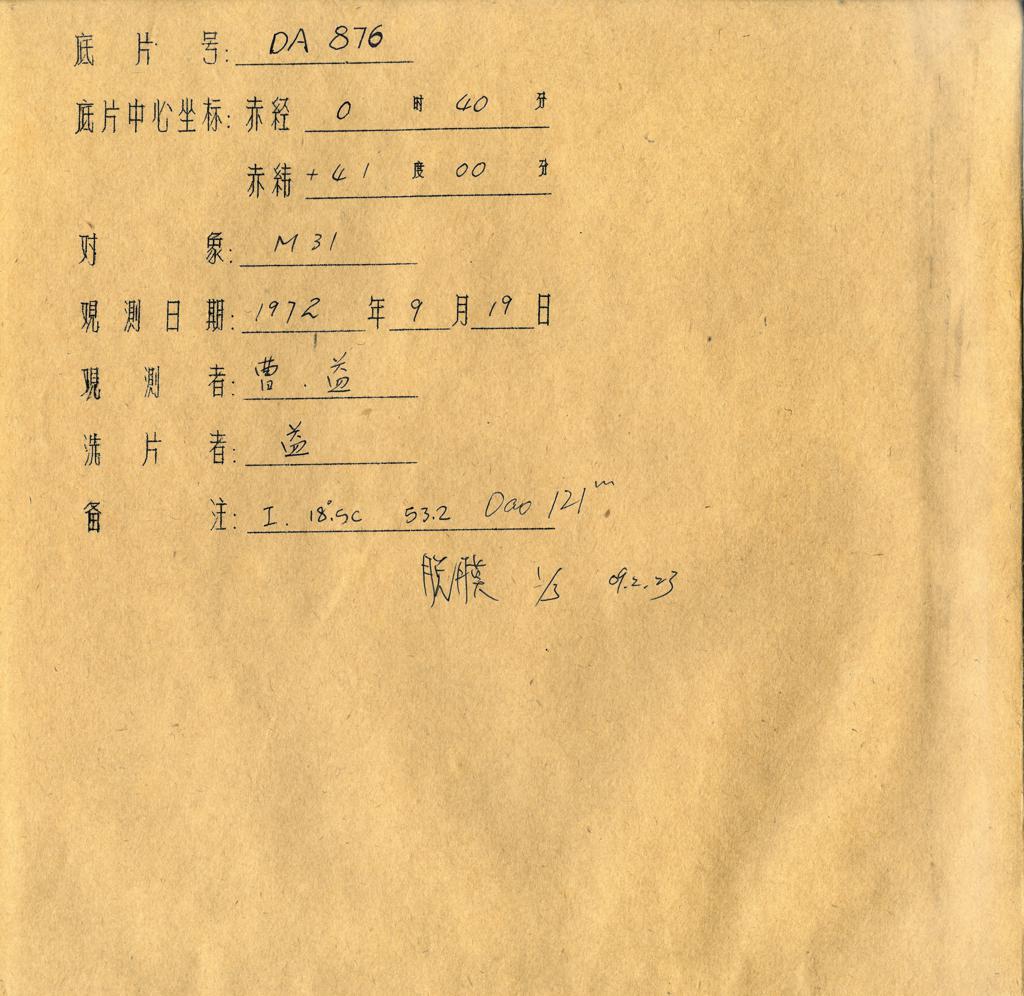 底片号: DA 876
底片中心坐标: 赤经 0 时 40 分
赤纬 +41 度 00 分
对象: M 31
观测日期: 1972 年 9 月 19 日
观测者: 曹. 益
洗片者: 益
备注: I. 18°.5C 53.2 Dao 121m
脱膜 1/3 09.2.23